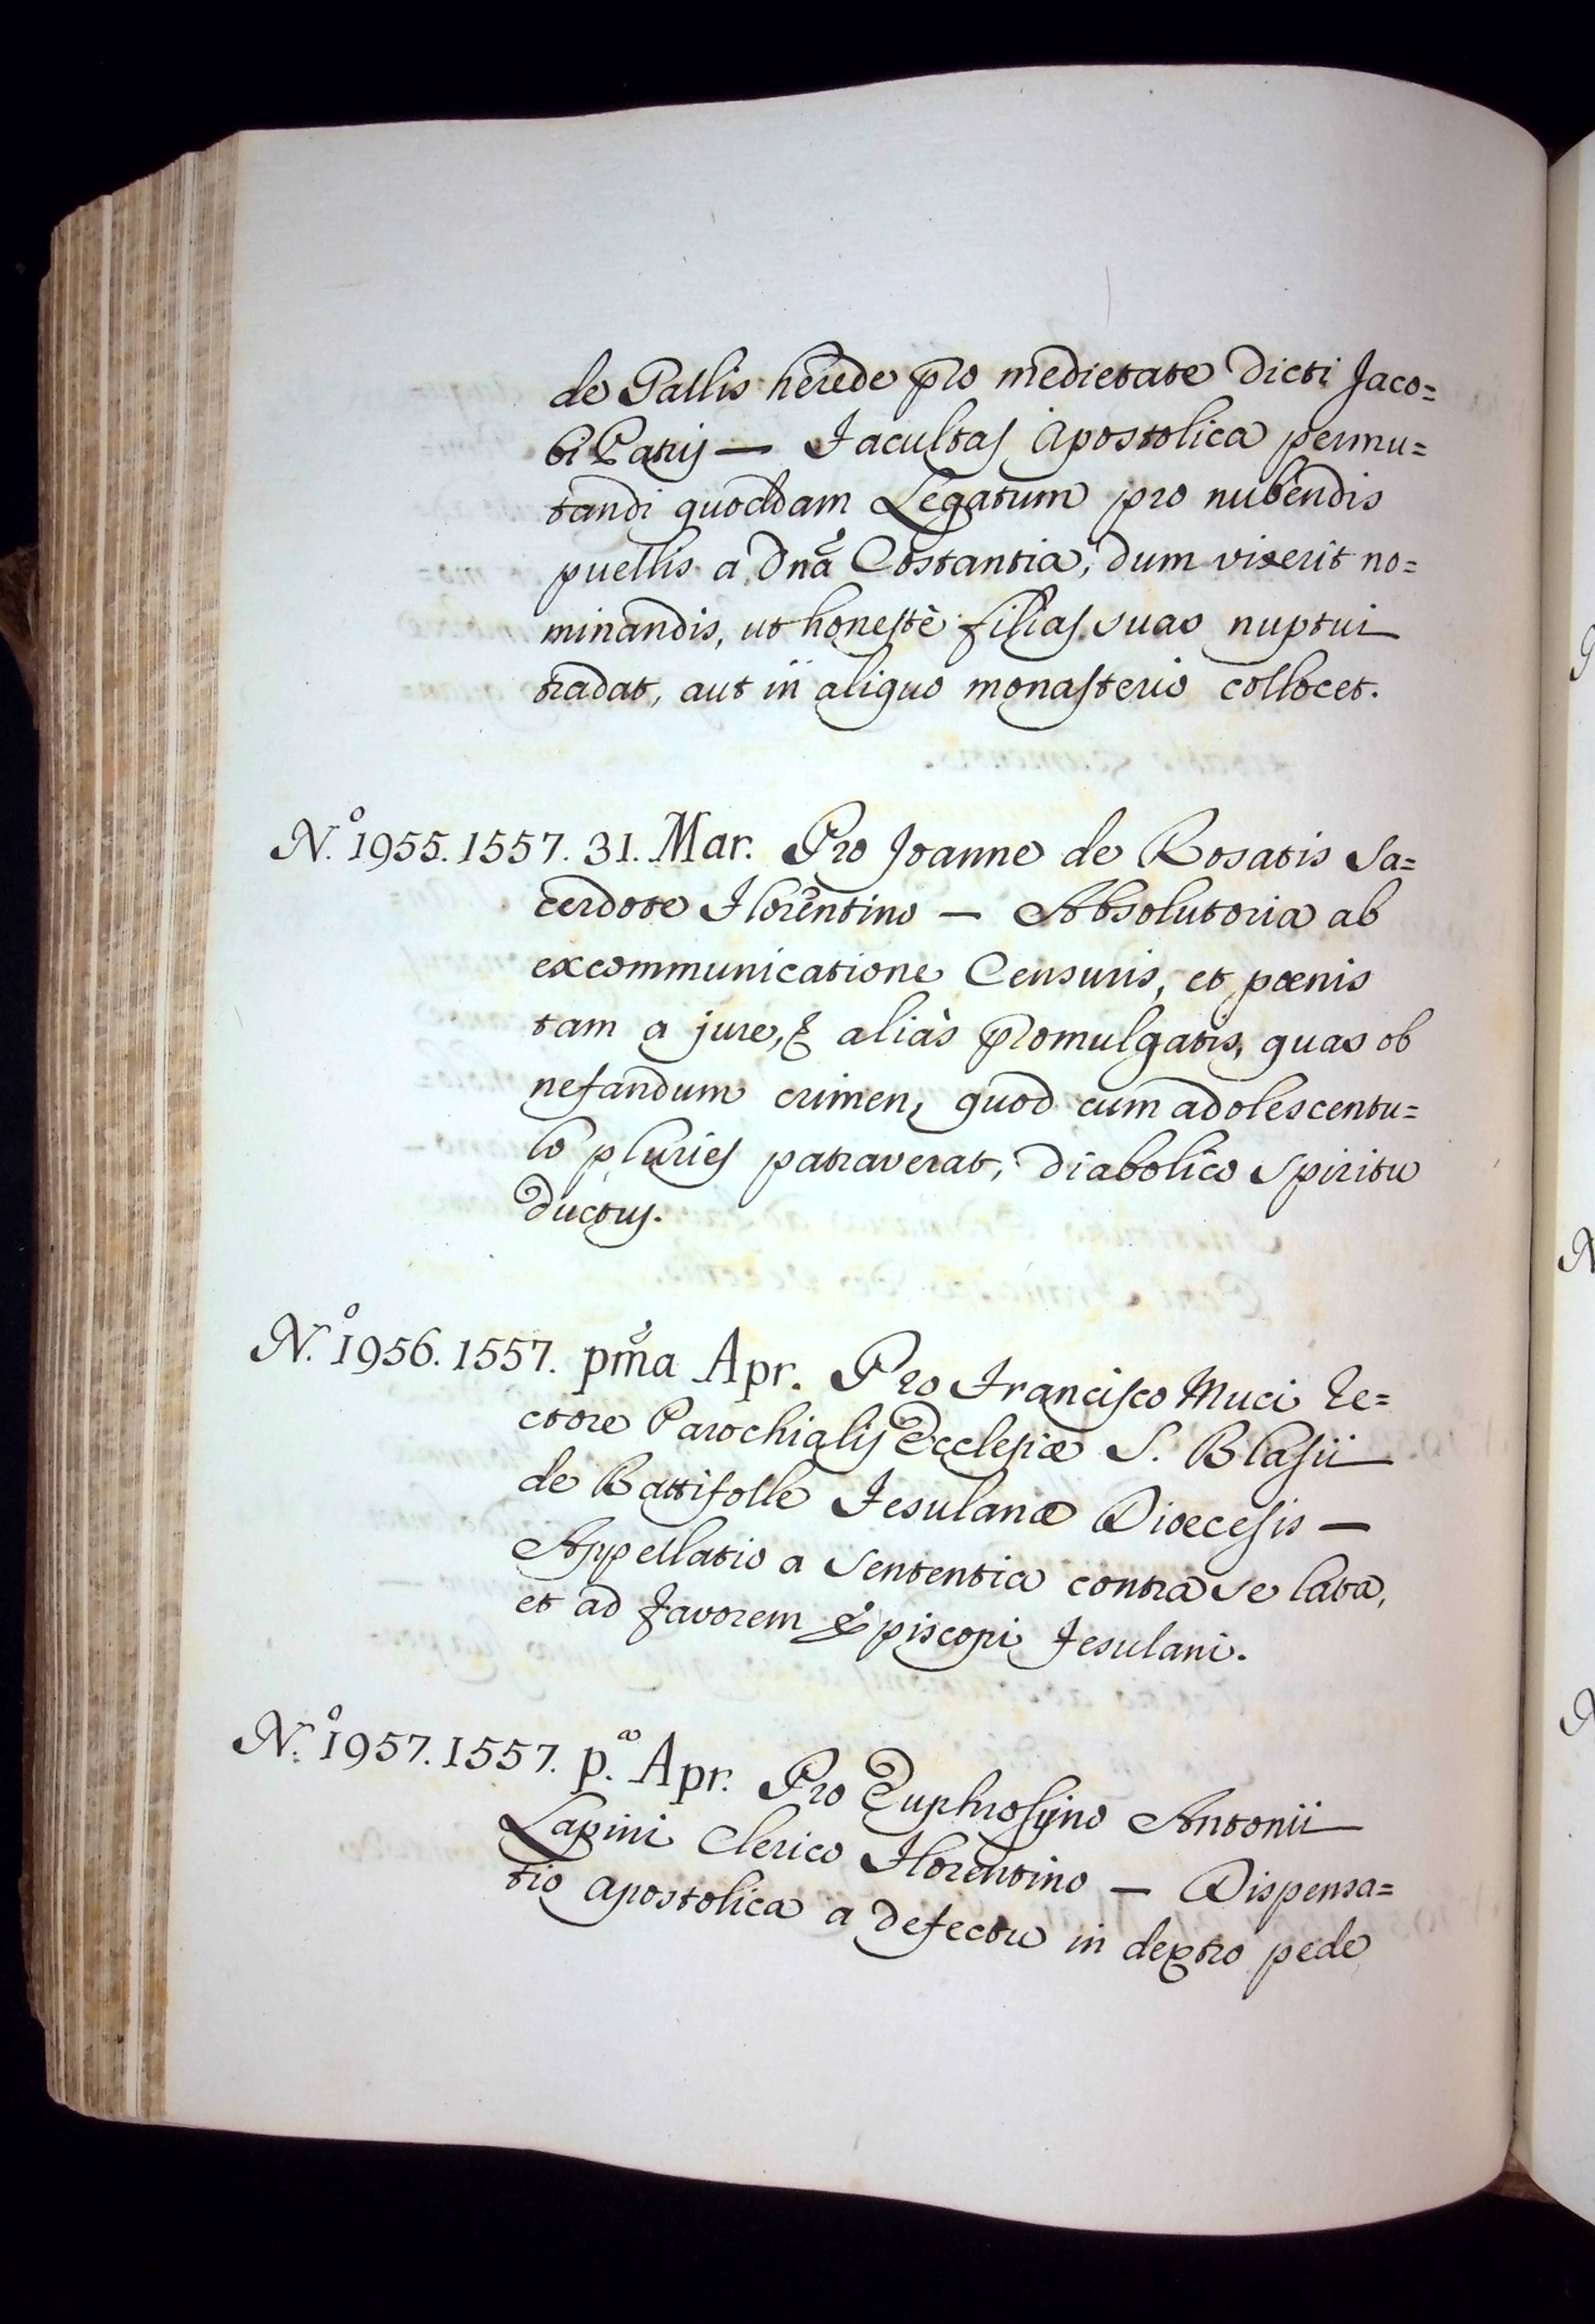 de Gallis herede pro medietate dicti Jaco=
bi Patris — Facultas Apostolica permu=
tandi quoddam Legatum pro nubendis
puellis a Dña Costantia, dum vixerit no=
minandis, ut honestè filias suas nuptui
tradat, aut in aliquo monasterio collocet.
N.º 1955. 1557. 31. Mar. Pro Joanne de Rosatis Sa=
cerdote Florentino — Absolutoria ab
excommunicatione Censuris, et pœnis
tam a jure, & aliàs promulgatis, quas ob
nefandum crimen, quod cum adolescentu=
lo pluries patraverat, diabolico Spiritu
ductus.
N.º 1956. 1557. pm̃a Apr. Pro Francisco Muci Re=
ctore Parochialis Ecclesiæ S. Blasii
de Battifolle Fesulanæ Diœcesis —
Appellatio a Sententia contra se lata,
et ad favorem Episcopi Fesulani.
N.º 1957. 1557. p.ª Apr. Pro Euphrosyno Antonii
Lapini Clerico Florentino — Dispensa=
tio Apostolica a defectu in dextro pede